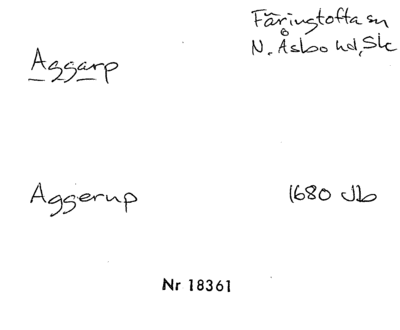 Färingtofta sn
N. Åsbo hd, Sk
Aggarp
Aggerup 1680 Jb
Nr 18361